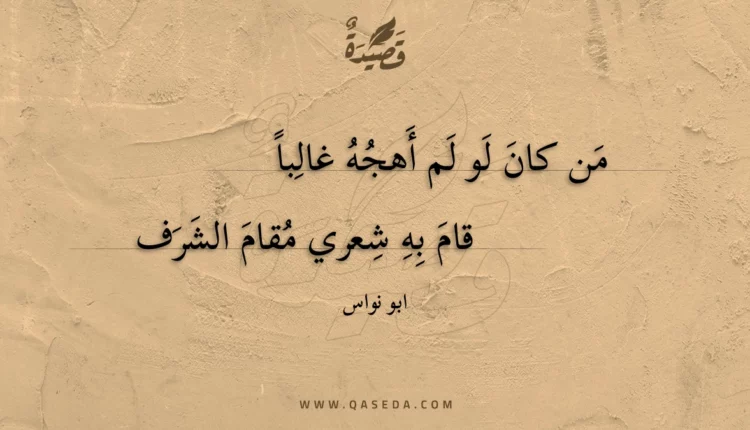 قَصِيْدَةٌ
مَن كانَ لَو لَم أَهجُهُ غالِباً
قامَ بِهِ شِعري مُقامَ الشَرَف
ابو نواس
WWW.QASEDA.COM